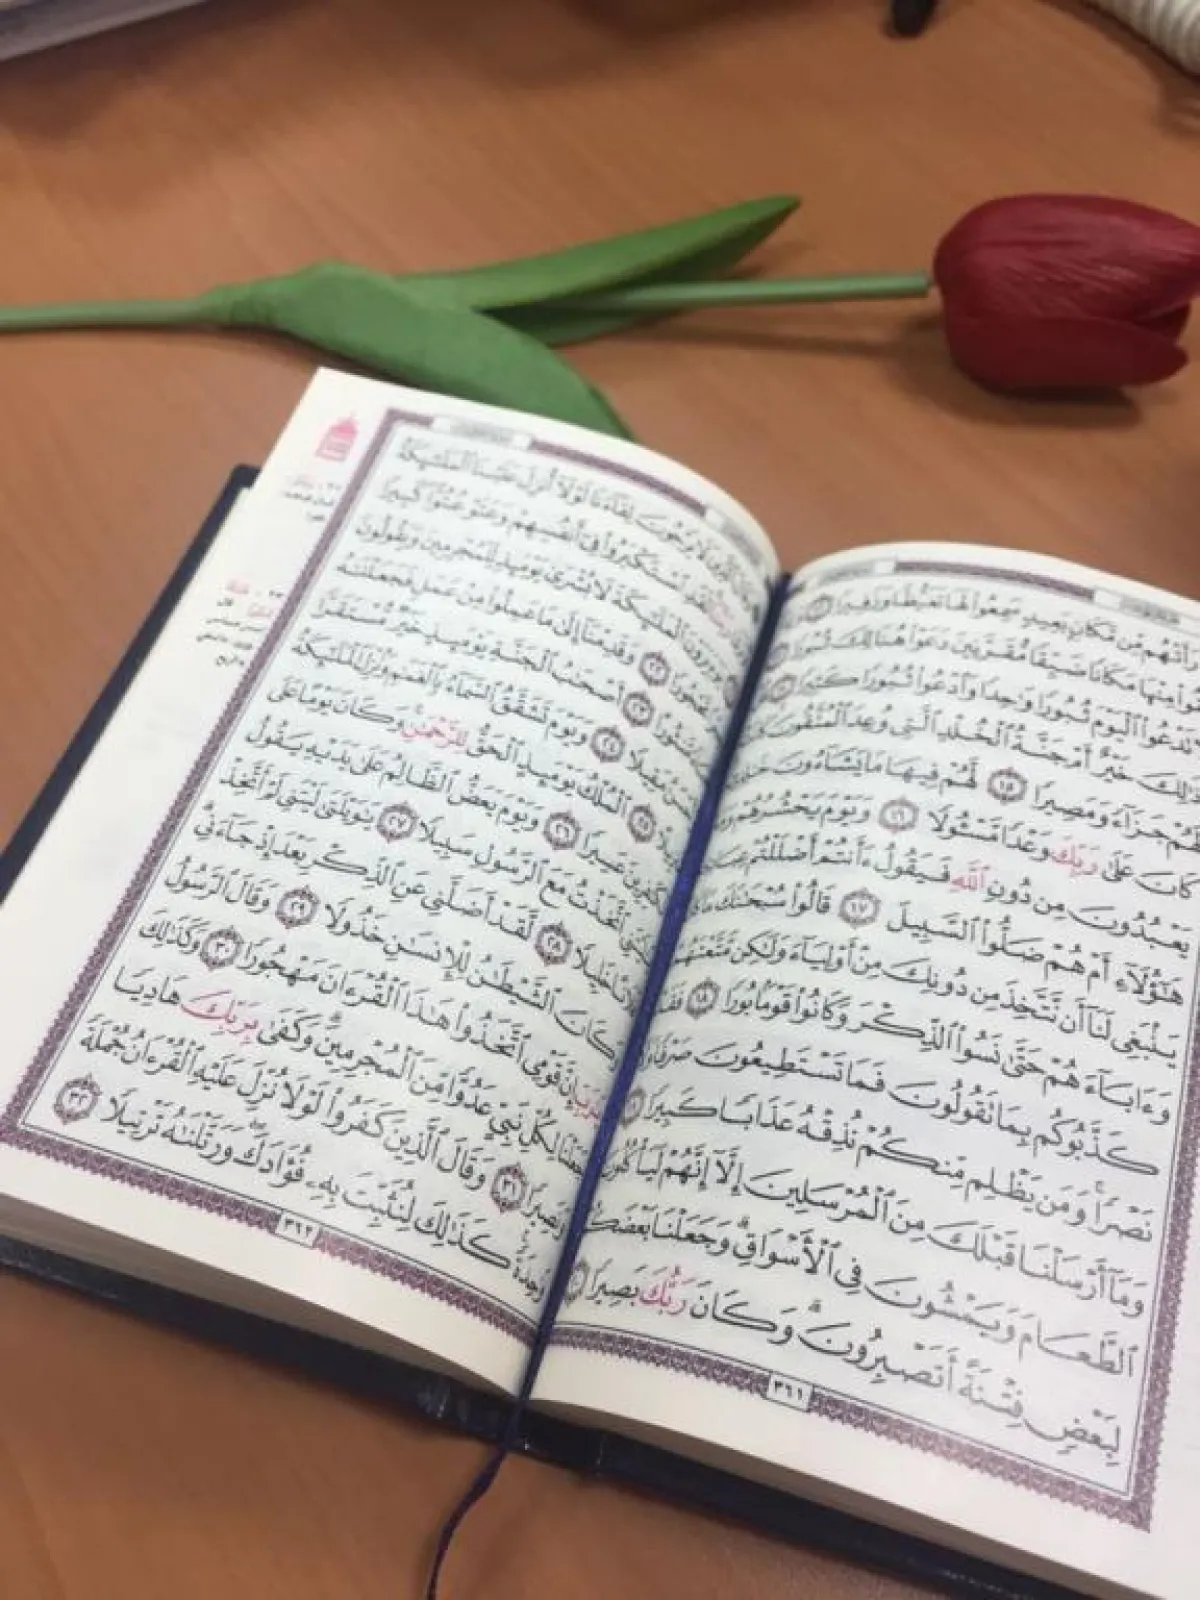 رَأَتْهُم مِّن مَّكَانٍ بَعِيدٍ سَمِعُوا۟ لَهَا تَغَيُّظًا وَزَفِيرًا
مِنْهَا مَكَانًا ضَيِّقًا مُّقَرَّنِينَ دَعَوْا۟ هُنَالِكَ ثُبُورًا
تَدْعُوا۟ ٱلْيَوْمَ ثُبُورًا وَٰحِدًا وَٱدْعُوا۟ ثُبُورًا كَثِيرًا
خَيْرٌ أَمْ جَنَّةُ ٱلْخُلْدِ ٱلَّتِى وُعِدَ ٱلْمُتَّقُونَ
لَهُمْ جَزَآءً وَمَصِيرًا ١٥ لَّهُمْ فِيهَا مَا يَشَآءُونَ
كَانَ عَلَىٰ رَبِّكَ وَعْدًا مَّسْـُٔولًا ١٦ وَيَوْمَ يَحْشُرُهُمْ
يَعْبُدُونَ مِن دُونِ ٱللَّهِ فَيَقُولُ ءَأَنتُمْ أَضْلَلْتُمْ
هَـٰٓؤُلَآءِ أَمْ هُمْ ضَلُّوا۟ ٱلسَّبِيلَ ١٧ قَالُوا۟ سُبْحَـٰنَكَ مَا
يَنۢبَغِى لَنَآ أَن نَّتَّخِذَ مِن دُونِكَ مِنْ أَوْلِيَآءَ وَلَـٰكِن مَّتَّعْتَهُمْ
وَءَابَآءَهُمْ حَتَّىٰ نَسُوا۟ ٱلذِّكْرَ وَكَانُوا۟ قَوْمًۢا بُورًا ١٨
كَذَّبُوكُم بِمَا تَقُولُونَ فَمَا تَسْتَطِيعُونَ صَرْفًا
نَصْرًا ۚ وَمَن يَظْلِم مِّنكُمْ نُذِقْهُ عَذَابًا كَبِيرًا
وَمَآ أَرْسَلْنَا قَبْلَكَ مِنَ ٱلْمُرْسَلِينَ إِلَّآ إِنَّهُمْ لَيَأْكُلُونَ
ٱلطَّعَامَ وَيَمْشُونَ فِى ٱلْأَسْوَاقِ ۗ وَجَعَلْنَا بَعْضَكُمْ
لِبَعْضٍ فِتْنَةً أَتَصْبِرُونَ ۗ وَكَانَ رَبُّكَ بَصِيرًا
٣٦١
لَا يَرْجُونَ لِقَآءَنَا لَوْلَآ أُنزِلَ عَلَيْنَا ٱلْمَلَـٰٓئِكَةُ
ٱسْتَكْبَرُوا۟ فِىٓ أَنفُسِهِمْ وَعَتَوْ عُتُوًّا كَبِيرًا
يَرَوْنَ ٱلْمَلَـٰٓئِكَةَ لَا بُشْرَىٰ يَوْمَئِذٍ لِّلْمُجْرِمِينَ وَيَقُولُونَ
مَّحْجُورًا ٢٢ وَقَدِمْنَآ إِلَىٰ مَا عَمِلُوا۟ مِنْ عَمَلٍ فَجَعَلْنَـٰهُ
مَّنثُورًا ٢٣ أَصْحَـٰبُ ٱلْجَنَّةِ يَوْمَئِذٍ خَيْرٌ مُّسْتَقَرًّا
وَأَحْسَنُ مَقِيلًا ٢٤ وَيَوْمَ تَشَقَّقُ ٱلسَّمَآءُ بِٱلْغَمَـٰمِ وَنُزِّلَ ٱلْمَلَـٰٓئِكَةُ
٢٥ ٱلْمُلْكُ يَوْمَئِذٍ ٱلْحَقُّ لِلرَّحْمَـٰنِ ۚ وَكَانَ يَوْمًا عَلَى
ٱلْكَـٰفِرِينَ عَسِيرًا ٢٦ وَيَوْمَ يَعَضُّ ٱلظَّالِمُ عَلَىٰ يَدَيْهِ يَقُولُ
ٱتَّخَذْتُ مَعَ ٱلرَّسُولِ سَبِيلًا ٢٧ يَـٰوَيْلَتَىٰ لَيْتَنِى لَمْ أَتَّخِذْ
خَلِيلًا ٢٨ لَّقَدْ أَضَلَّنِى عَنِ ٱلذِّكْرِ بَعْدَ إِذْ جَآءَنِى ۗ
كَانَ ٱلشَّيْطَـٰنُ لِلْإِنسَـٰنِ خَذُولًا ٢٩ وَقَالَ ٱلرَّسُولُ
يَـٰرَبِّ إِنَّ قَوْمِى ٱتَّخَذُوا۟ هَـٰذَا ٱلْقُرْءَانَ مَهْجُورًا ٣٠ وَكَذَٰلِكَ
جَعَلْنَا لِكُلِّ نَبِىٍّ عَدُوًّا مِّنَ ٱلْمُجْرِمِينَ ۗ وَكَفَىٰ بِرَبِّكَ هَادِيًا
وَنَصِيرًا ٣١ وَقَالَ ٱلَّذِينَ كَفَرُوا۟ لَوْلَا نُزِّلَ عَلَيْهِ ٱلْقُرْءَانُ جُمْلَةً
وَٰحِدَةً ۚ كَذَٰلِكَ لِنُثَبِّتَ بِهِۦ فُؤَادَكَ ۖ وَرَتَّلْنَـٰهُ تَرْتِيلًا ٣٢
٣٦٢